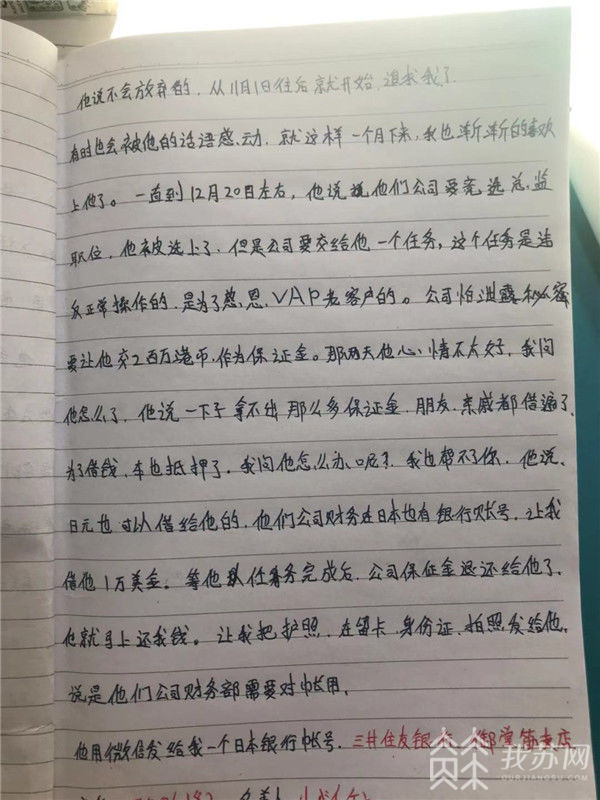 他说不会放弃的，从11月1日往后就开始，追我我了.
有时也会被他的话语感动，就这样一个月下来，我也渐渐的喜欢
上他了。一直到12月20日左右，他说他们公司要竞选总监
职位，他被选上了，但是公司要交给他一个任务，这个任务是违
反正常操作的，是为了感恩，VAP老客户的。公司怕泄露秘密
要让他交2百万港币，作为保证金。那两天他心情不太好，我问
他怎么了，他说一下子拿不出那么多保证金，朋友，亲戚都借遍了，
为了借钱，车也抵押了，我问他怎么办呢？我也帮不了你，他说，
日元也可以借给他的，他们公司财务在日本也有银行账号，让我
借他1万美金。等他任务完成后，公司保证金退还给他了，
他就马上还我钱。让我把护照，在留卡，身份证，拍照发给他，
说是他们公司财务部需要对帐用，
他用微信发给我一个日本银行帐号，三井住友银行 御堂筋支店
我苏网
OURJIANGSU.COM